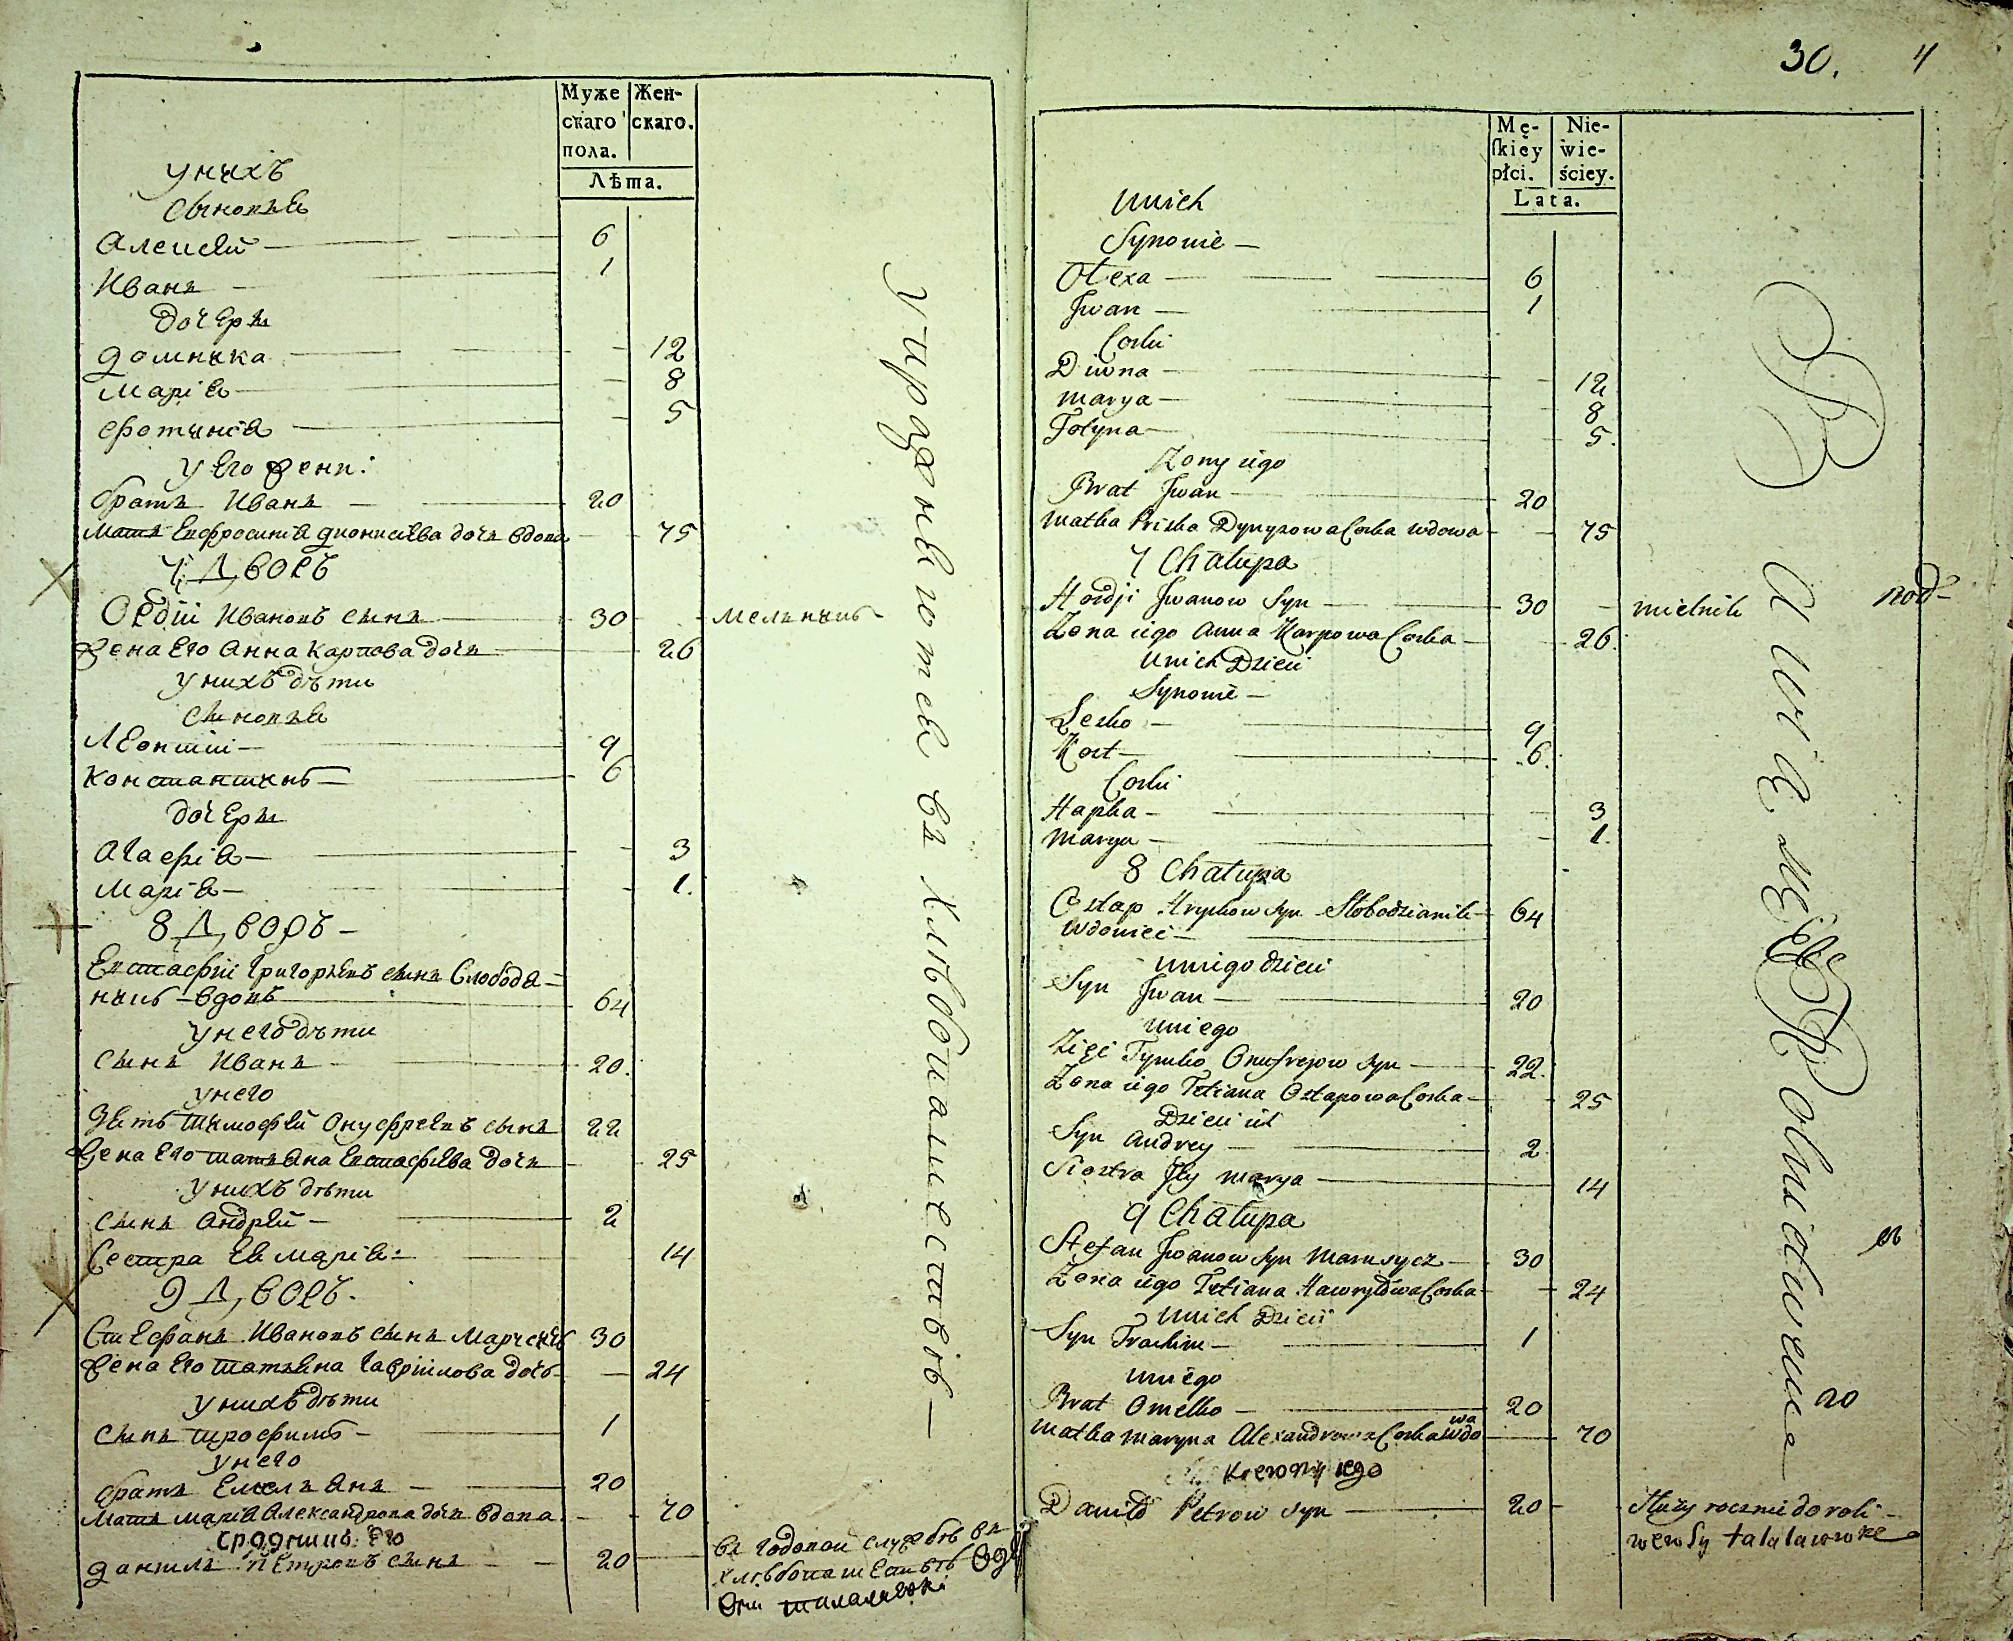 Муже
скаго
пола.
Жен-
скаго.
Лѣта.
У нихъ
сыновья
Алексѣй — 6
Иванъ — 1
дочери
Домника — 12
Марія — 8
Фотинія — 5
у его жени:
братъ Иванъ — 20
Мать Евфросинія Дионисіева дочь вдова — 75
7 Дворъ
Ордій Ивановъ сынъ — 30 — мельникъ
Жена его Анна Карпова дочь — 26
у нихъ дѣти
сыновья
Леонтій — 9
Константинъ — 6
дочери
Агафія — 3
Марія — 1.
8 Дворъ —
Евстафій Григорьевъ сынъ Слободя-
никъ — вдовъ — 64
у него дѣти
сынъ Иванъ — 20.
у него
Зять Тимофѣй Онуфреевъ сынъ 22
Жена его Татьяна Евстафѣева дочь — 25
у нихъ дѣти
сынъ Андрѣй — 2
Сестра ея Марія: 14
9 Дворъ.
Стефанъ Ивановъ сынъ 30
Жена его Татьяна Гавріилова дочь — 24
у нихъ дѣти
сынъ Трофимъ — 1
у него
братъ Емельянъ — 20
Мать Марія Александрова дочь вдова — 70
сродникъ его
Данила Петровъ сынъ — 20
въ годовой службѣ въ
хлѣбопашествѣ
Упражняются въ хлѣбопашествѣ —
30. 4
Mę-
ſkiéy
płci.
Nie-
wie-
ściey.
Lata.
Unich
Synowie —
Olexa — 6
Jwan — 1
Corki
Diwna — 12
Marya — 8
Fotyna — 5.
Zony iego
Brat Jwan — 20
Matka Priska Dynyzowa Corka wdowa — 75
7 Chałupa
Hordji Jwanow Syn — 30 — mielnik
Zona iego Anna Karpowa Corka — 26.
Unich Dzieci
Synowie —
Lesko — 9
Kost — 6.
Corki
Hapka — 3
Marya — 1.
8 Chałupa
Ostap Hryckow Syn Słobodzianik — 64
Wdowiec —
Uniego dzieci
Syn Jwan — 20
Uniego
Zięć Tymko Onufrejow Syn — 22.
Zona iego Tetiana Ostapowa Corka — 25
Dzieci ich
Syn Andrey — 2
Siostra Jey Marya — 14
9 Chałupa
Stefan Jwanow Syn — 30
Zona iego Tetiana Hawryłowa Corka — 24
Unich Dzieci
Syn Trochim — 1
Uniego
Brat Omelko — 20
Matka Maryna Alexandrowa Corka wdo
wa — 70
Krewny iego
Daniło Petrow Syn — 20 — Służy rocznie do roli
we wsy Talalaiowke